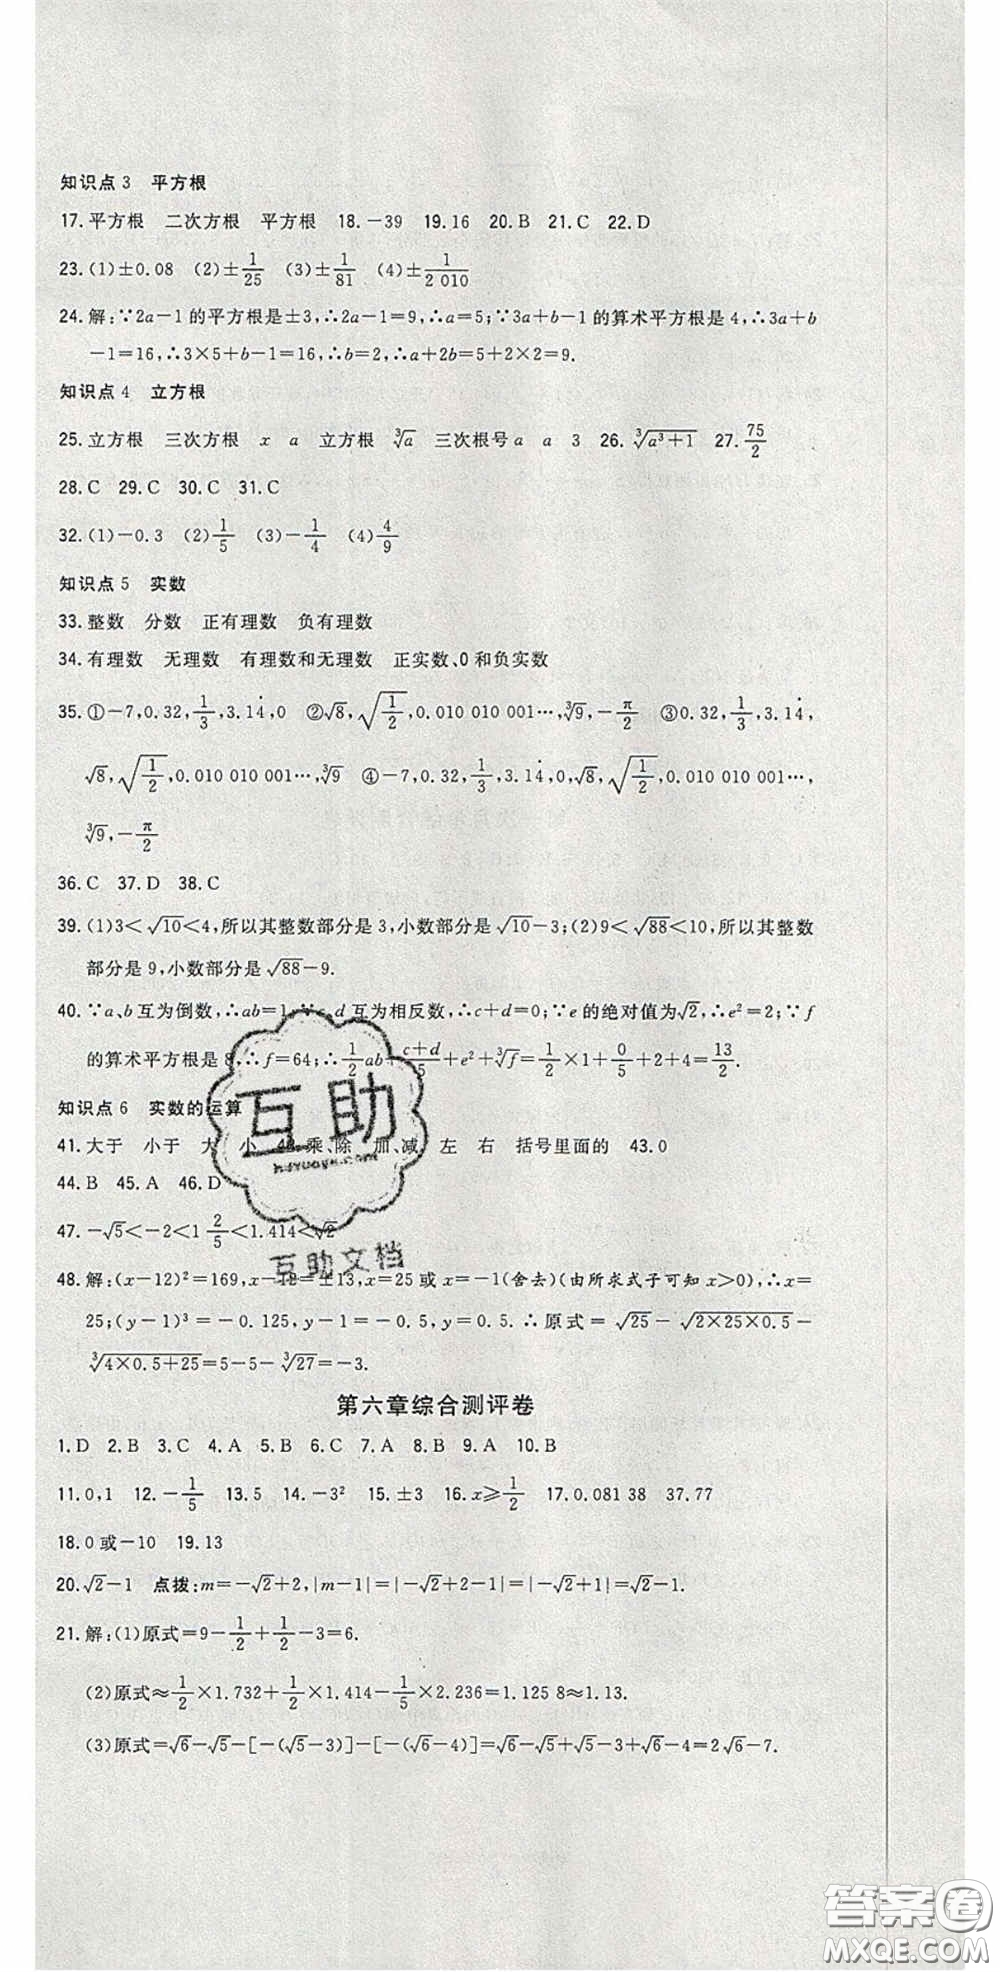 知识点3 平方根
17.平方根 二次方根 平方根 18.-39 19.16 20.B 21.C 22.D
23.(1)±0.08 (2)±1/25 (3)±1/81 (4)±1/2 010
24.解:∵2a-1的平方根是±3,∴2a-1=9,∴a=5;∵3a+b-1的算术平方根是4,∴3a+b
-1=16,∴3×5+b-1=16,∴b=2,∴a+2b=5+2×2=9.
知识点4 立方根
25.立方根 三次方根 x a 立方根 ∛a 三次根号a a 3 26.∛(a³+1) 27.75/2
28.C 29.C 30.C 31.C
32.(1)-0.3 (2)1/5 (3)-1/4 (4)4/9
知识点5 实数
33.整数 分数 正有理数 负有理数
34.有理数 无理数 有理数和无理数 正实数、0和负实数
35.①-7,0.32,1/3,3.14̇,0 ②√8,√(1/2),0.010 010 001…,∛9,-π/2 ③0.32,1/3,3.14̇,
√8,√(1/2),0.010 010 001…,∛9 ④-7,0.32,1/3,3.14̇,0,√8,√(1/2),0.010 010 001…,
∛9,-π/2
36.C 37.D 38.C
39.(1)3<√10<4,所以其整数部分是3,小数部分是√10-3;(2)9<√88<10,所以其整数
部分是9,小数部分是√88-9.
40.∵a、b互为倒数,∴ab=1,∵c、d互为相反数,∴c+d=0;∵e的绝对值为√2,∴e²=2;∵f
的算术平方根是8,∴f=64;∴1/2ab+(c+d)/5+e²+∛f=1/2×1+0/5+2+4=13/2.
知识点6 实数的运算
41.大于 小于 大 小 42.乘、除 加、减 左 右 括号里面的 43.0
44.B 45.A 46.D
47.-√5<-2<1 2/5<1.414<√2
48.解:(x-12)²=169,x-12=±13,x=25或x=-1(舍去)(由所求式子可知x>0),∴x=
25;(y-1)³=-0.125,y-1=-0.5,y=0.5.∴原式=√25-√(2×25×0.5)-
∛(4×0.5+25)=5-5-∛27=-3.
第六章综合测评卷
1.D 2.B 3.C 4.A 5.B 6.C 7.A 8.B 9.A 10.B
11.0,1 12.-1/5 13.5 14.-3² 15.±3 16.x≥1/2 17.0.081 38 37.77
18.0或-10 19.13
20.√2-1 点拨:m=-√2+2,|m-1|=|-√2+2-1|=|-√2+1|=√2-1.
21.解:(1)原式=9-1/2+1/2-3=6.
(2)原式≈1/2×1.732+1/4×1.414-1/5×2.236=1.125 8≈1.13.
(3)原式=√6-√5-[-(√5-3)]-[-(√6-4)]=√6-√5+√5-3+√6-4=2√6-7.
互助
互助文档
答案圈
MXQE.COM